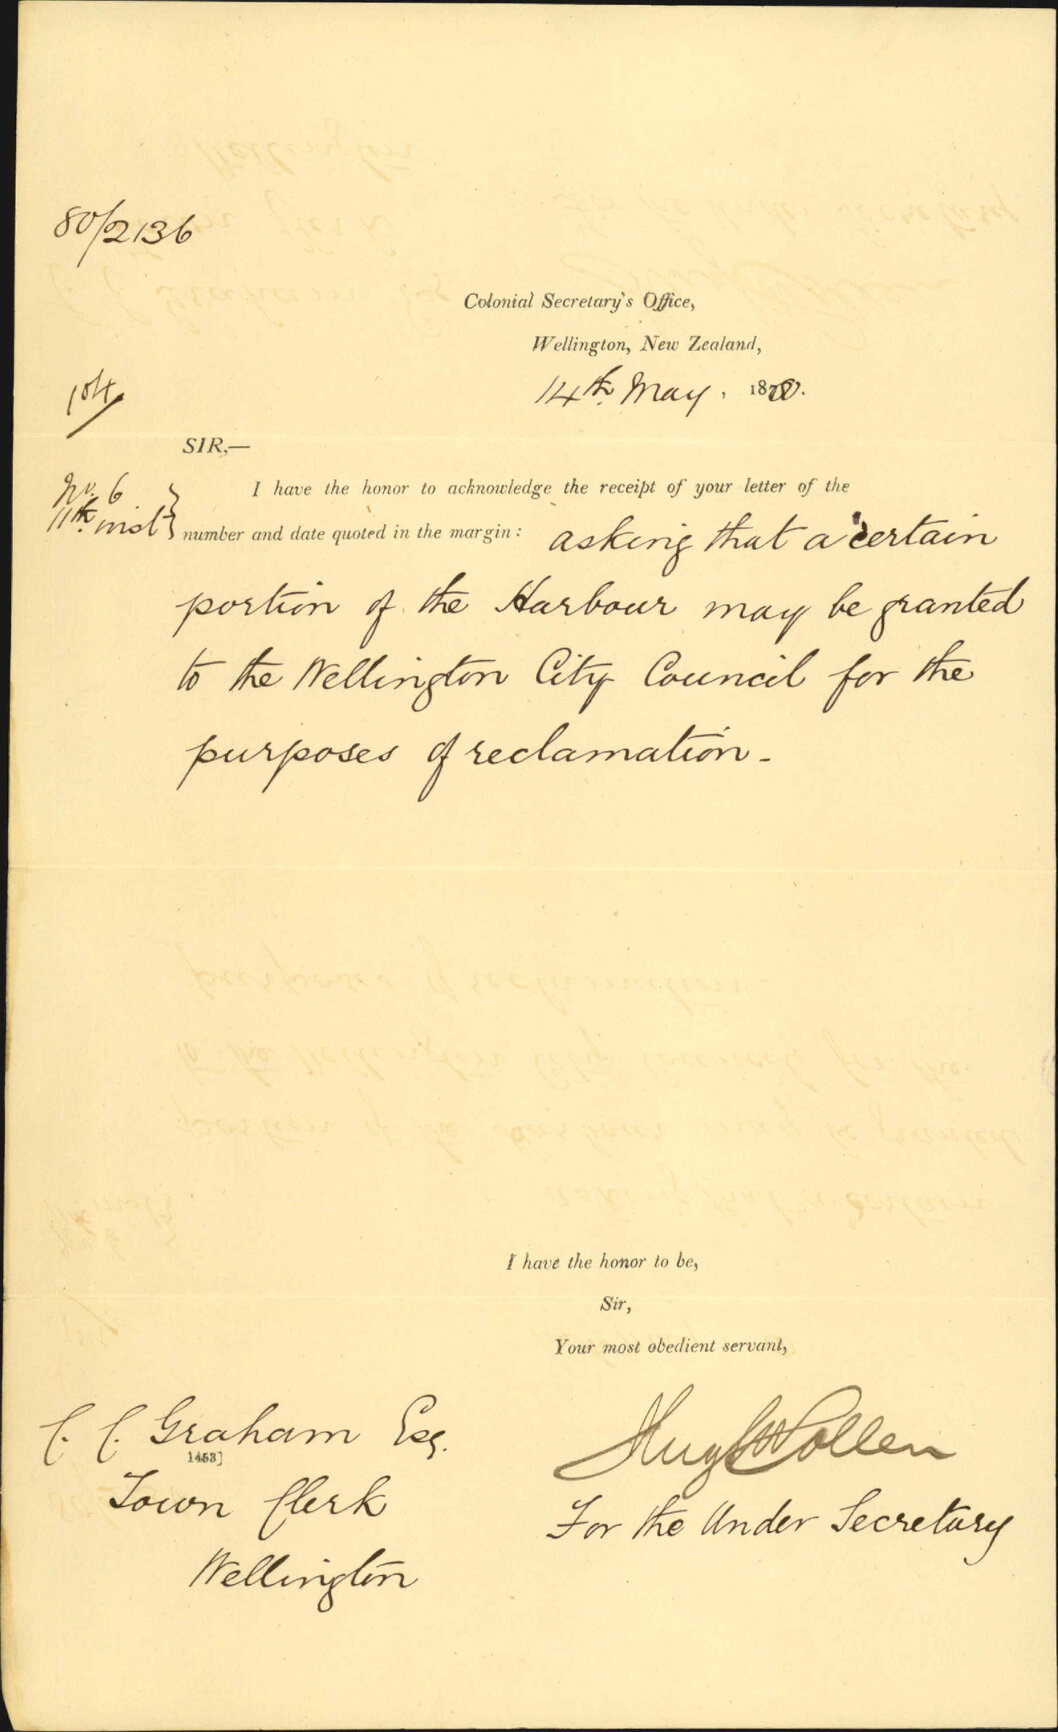 80/2136
Colonial Secretary's Office,
Wellington, New Zealand,
14th. May. 1880.
SIR,—
No. 6
11th. inst
I have the honor to acknowledge the receipt of your letter of the
number and date quoted in the margin: asking that a certain
portion of the Harbour may be granted
to the Wellington City Council for the
purposes of reclamation -
I have the honor to be,
Sir,
Your most obedient servant,
C. C. Graham Esq.
1453]
Town Clerk
Wellington
Hugh Pollen
For the Under Secretary